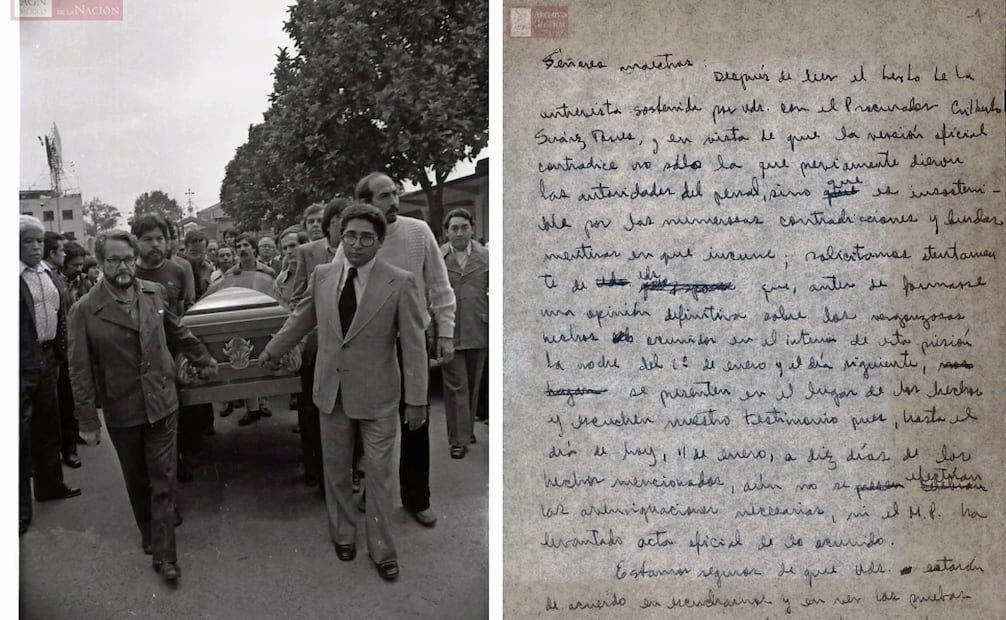 AGN
MÉXICO
DE LA NACIÓN
ARCHIVO
GENERAL
1
Señores maestros:
Después de leer el texto de la
entrevista sostenida por uds. con el Procurador Gilberto
Suárez Torres, y en vista de que la versión oficial
contradice no sólo la que previamente dieron
las autoridades del penal, sino que es insosteni-
ble por las numerosas contradicciones y burdas
mentiras en que incurre; solicitamos atentamen
te de uds. que, antes de formarse
una opinión definitiva sobre los vergonzosos
hechos ocurridos en el interior de esta prisión
la noche del 1º de enero y el día siguiente,
se presenten en el lugar de los hechos
y escuchen nuestro testimonio pues, hasta el
día de hoy, 11 de enero, a diez días de los
hechos mencionados, aún no se efectúan
las averiguaciones necesarias, ni el M.P. ha
levantado acta oficial de lo ocurrido.
Estamos seguros de que uds. estarán
de acuerdo en escucharnos y en ver las pruebas